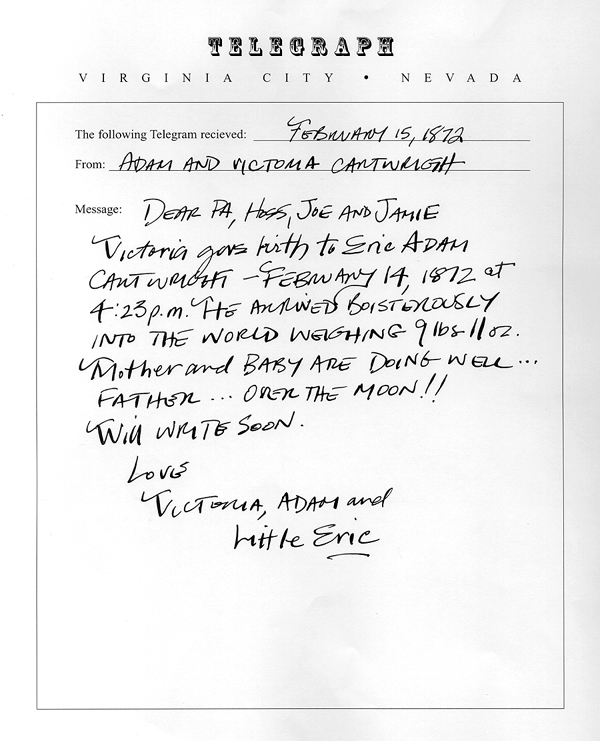 TELEGRAPH
VIRGINIA CITY • NEVADA
The following Telegram recieved: FEBRUARY 15, 1872
From: ADAM AND VICTORIA CARTWRIGHT
Message: DEAR PA, HOSS, JOE AND JAMIE
Victoria gave birth to Eric ADAM
CARTWRIGHT – FEBRUARY 14, 1872 at
4:23 p.m. HE ARRIVED BOISTEROUSLY
INTO THE WORLD WEIGHING 9 lbs 11 oz.
Mother and BABY ARE DOING WELL...
FATHER ... OVER THE MOON!!
Will WRITE SOON.
LOVE
VICTORIA, ADAM and
Little Eric